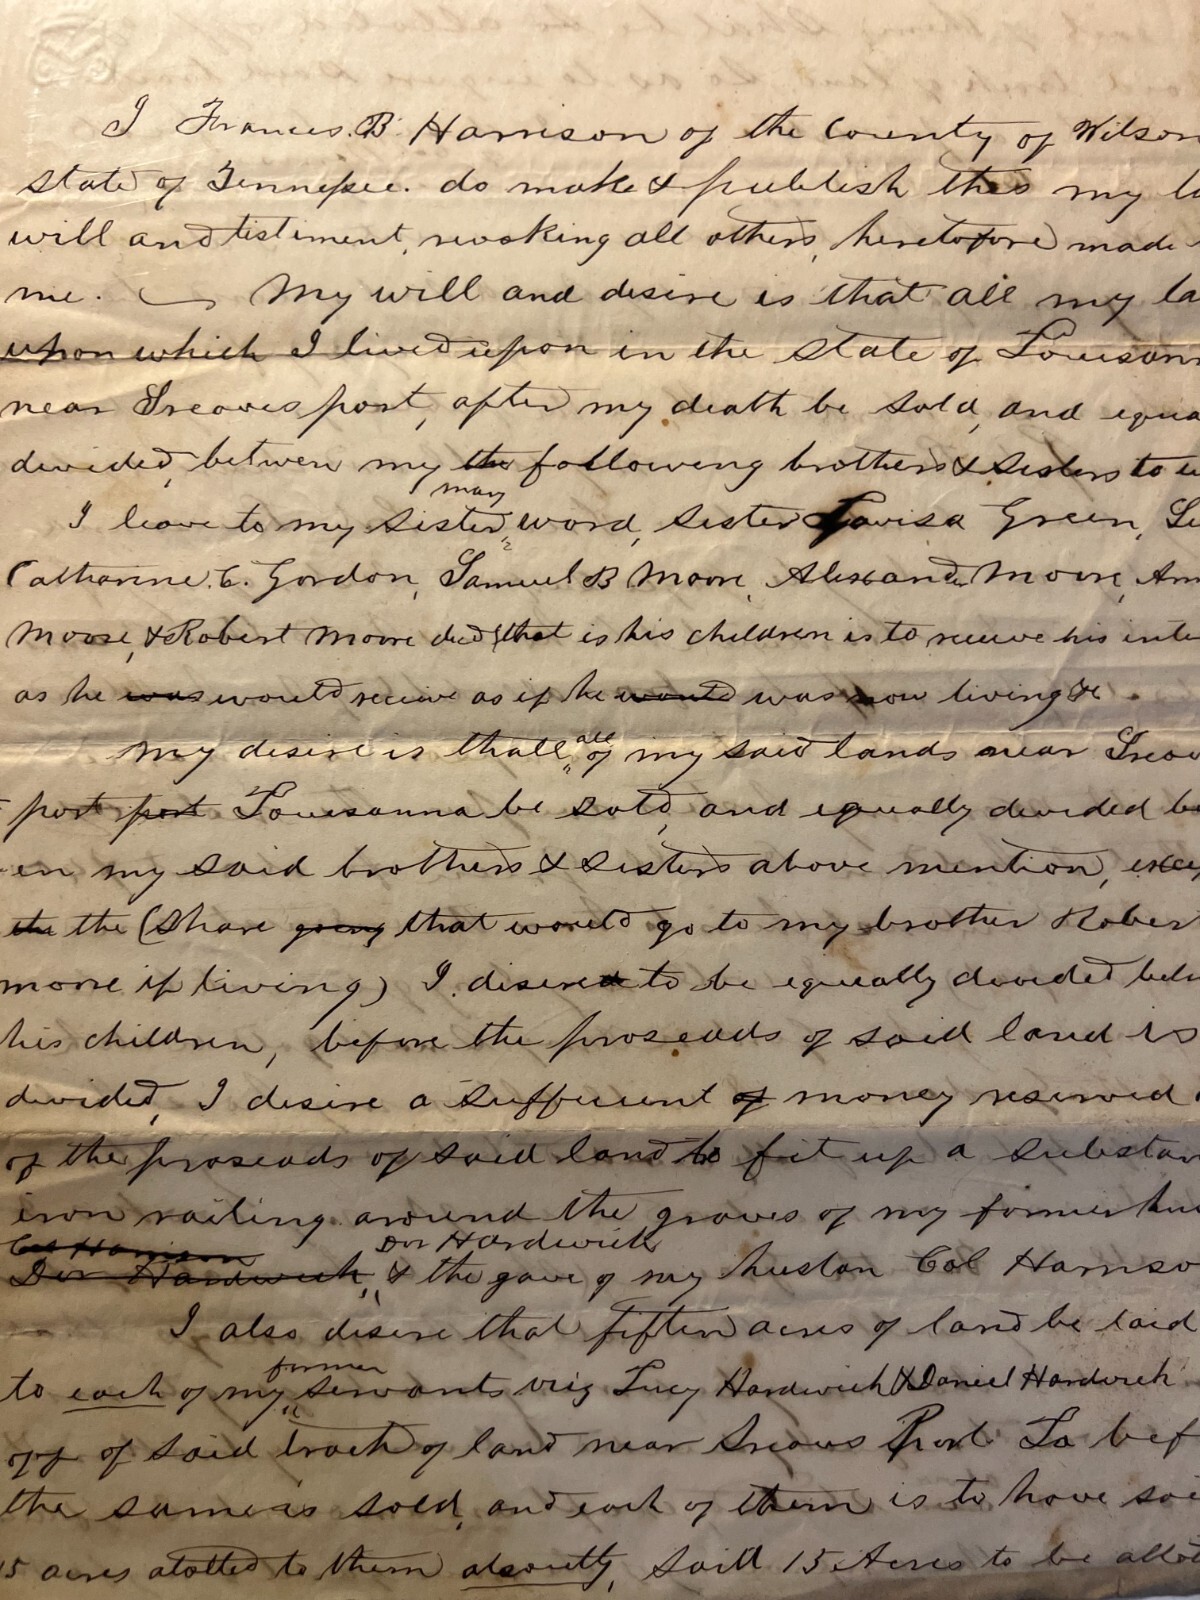 I Frances. B. Harrison of the County of Wilson
state of Tennessee. do make & publish this my la
will and testiment, revoking all others, heretofore made
me. My will and desire is that all my la
upon which I lived upon in the state of Louisann
near Sreaves port, after my death be sold, and equa
divided, between my the following brothers & sisters to w
I leave to my sister, mary word, sister Lovisa Green, Si
Catharine. C. Gordon, Samuel B Moore, Alexander Moore, Am
Moore, & Robert Moore decd (that is his children is to receive his inte
as he was would receive as if he would was now living &c.
My desire is thall all of my said lands near Sreav
port port Louisanna be sold, and equally divided be
en my said brothers & sisters above mention, excep
the the (share going that would go to my brother Rober
moore if living) I disered to be equally divided betw
his children, before the proseads of said land is
divided, I desire a sufficient of money reserved
of the proseads of said land to fit up a substan
iron railing around the graves of my former hus
Col Harrison Dor Hardwick
Dor Hardwick, & the gave of my huston Col Harriso
I also disire that fiften acres of land be laid
to each of my former servants viz Lucy Hardwick & Daniel Hardwick
off of said track of land near Sreavs Port La bef
the same is sold, and each of them is to have sai
15 acres alotted to them absoutly, said 15 Acres to be allot